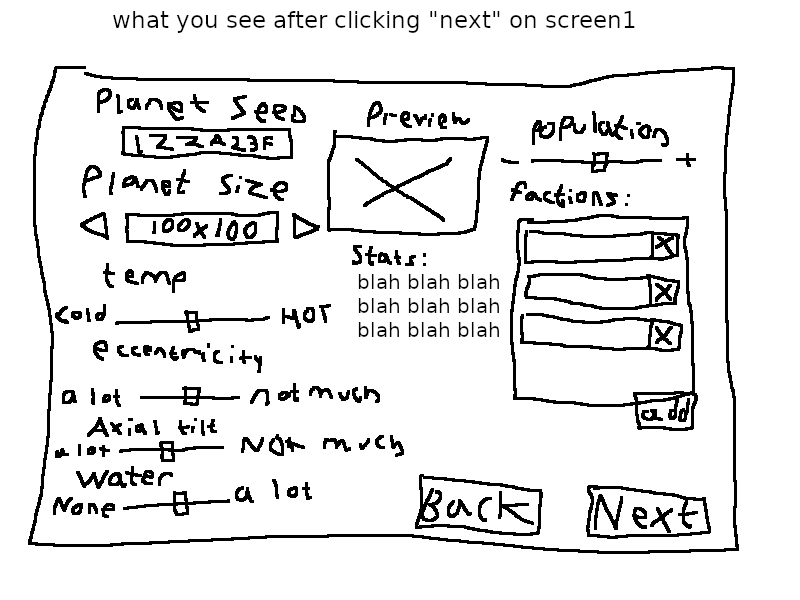 what you see after clicking "next" on screen1
Planet Seed
122A23F
Planet Size
100x100
temp
Cold HOT
eccentricity
a lot not much
Axial tilt
a lot NOt much
Water
None a lot
Preview
Stats:
blah blah blah
blah blah blah
blah blah blah
population
- +
factions:
X
X
X
add
Back
Next